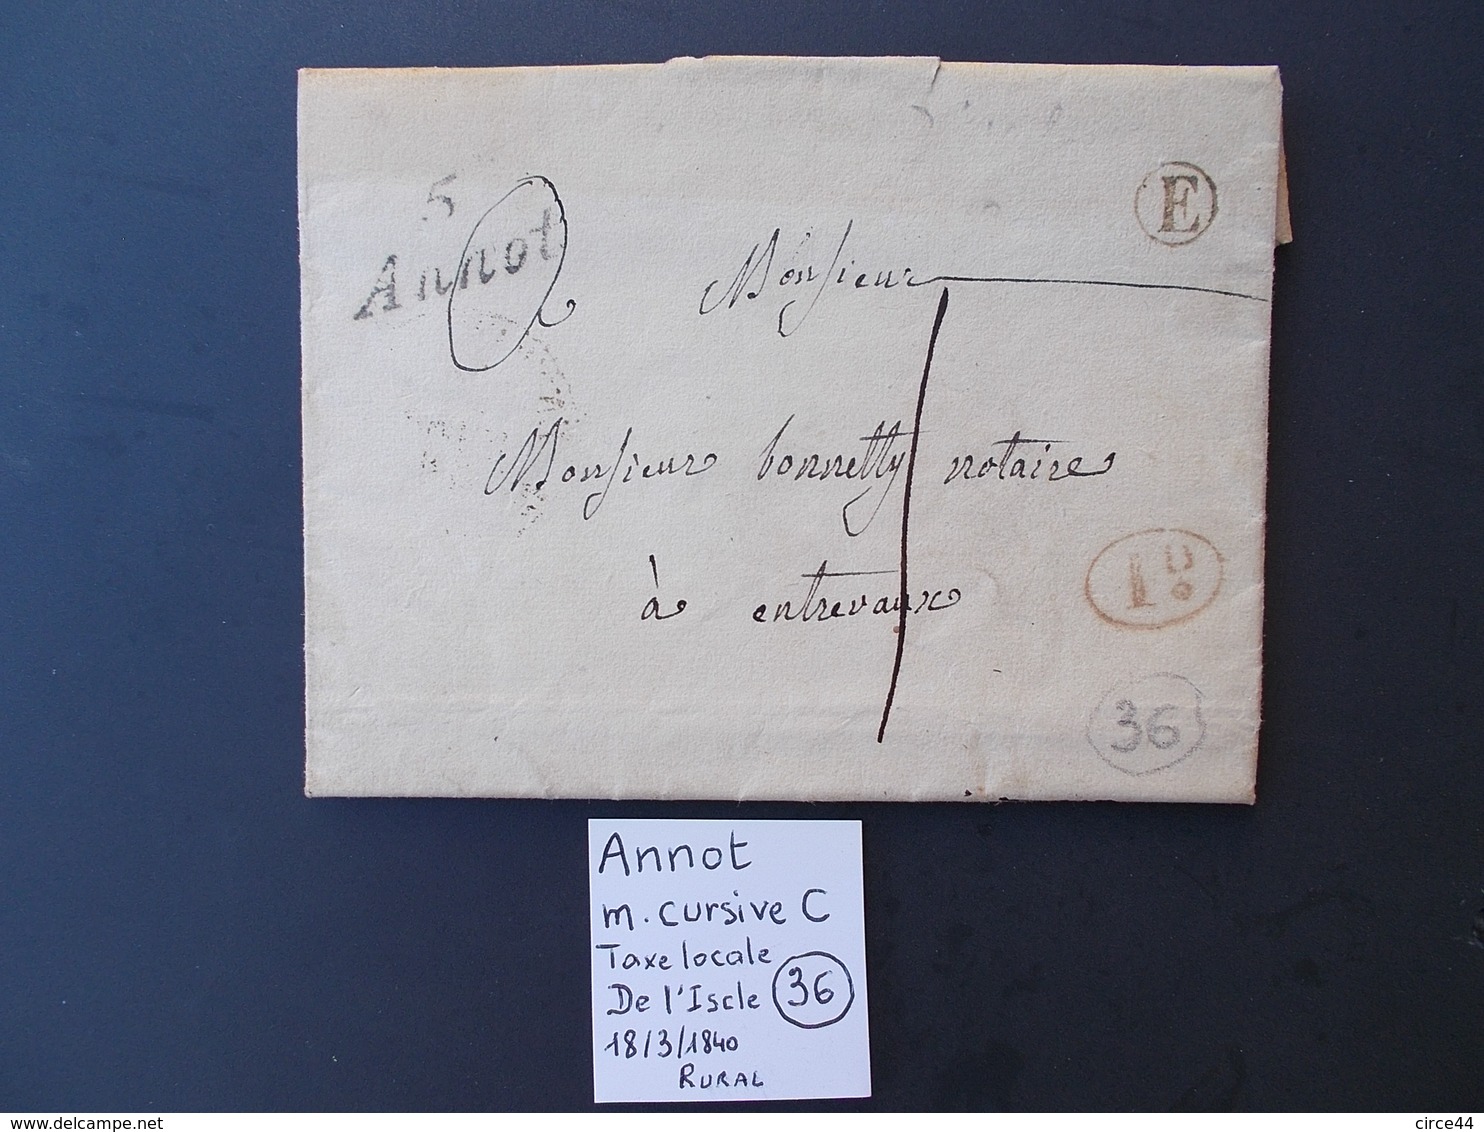 5
Annot
E
Monsieur
Monsieur bonnetty notaire
à entrevaux
1D
36
Annot
m. cursive C
Taxe locale
De l'Iscle 36
18/3/1840
RURAL
www.delcampe.net
circe44